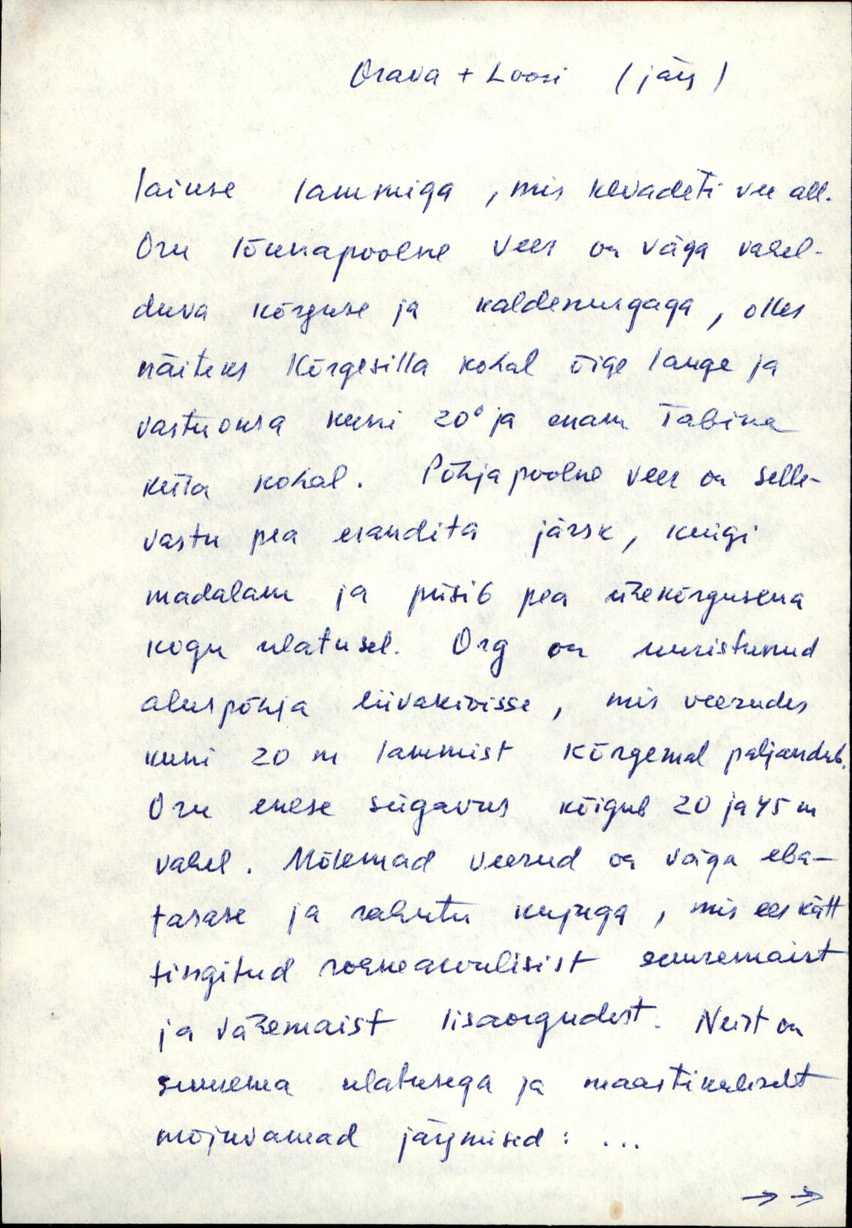 Orava + Loosi (järg)
laiuse lammiga, mis kevadeti vee all.
Oru lõunapoolne veer on väga vahel-
duva kõrguse ja kaldenurgaga, olles
näiteks Kõrgesilla kohal õige lauge ja
vastuoksa kuni 20° ja enam Tabina
küla kohal. Põhjapoolne veer on selle-
vastu pea erandita järsk, kuigi
madalam ja püsib pea ühekõrgusena
kogu ulatusel. Org on uuristunud
aluspõhja liivakivisse, mis veerudes
kuni 20 m lammist kõrgemal paljandub.
Oru enese sügavus kõigub 20 ja 45 m
vahel. Mõlemad veerud on väga eba-
tasase ja rahutu kujuga, mis eeskätt
tingitud rohkearvulisist suuremaist
ja vähemaist lisaorgudest. Neist on
suurema ulatusega ja maastikuliselt
mõjuvamad järgmised: ...
→ →